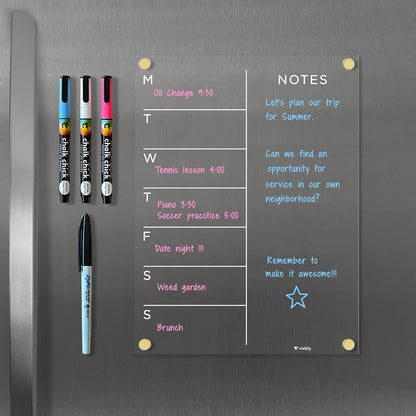 M
Oil Change 9:30
T
W
Tennis lesson 4:00
T
Piano 3:30
Soccer practice 5:00
F
Date night !!!
S
Weed garden
S
Brunch
NOTES
Let's plan our trip
for Summer.
Can we find an
opportunity for
service in our own
neighborhood?
Remember to
make it awesome!!!
visibly
chalk chick
chalk chick
chalk chick